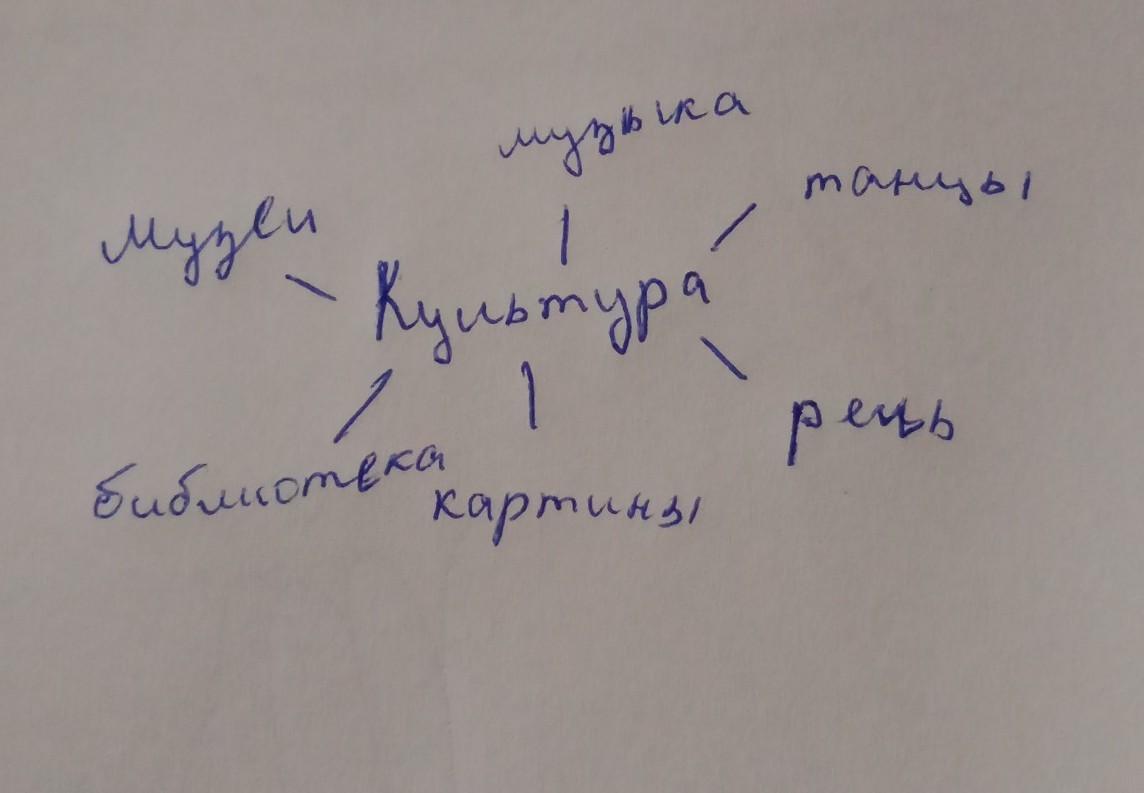 музыка
танцы
Музеи
Культура
речь
библиотека
картины